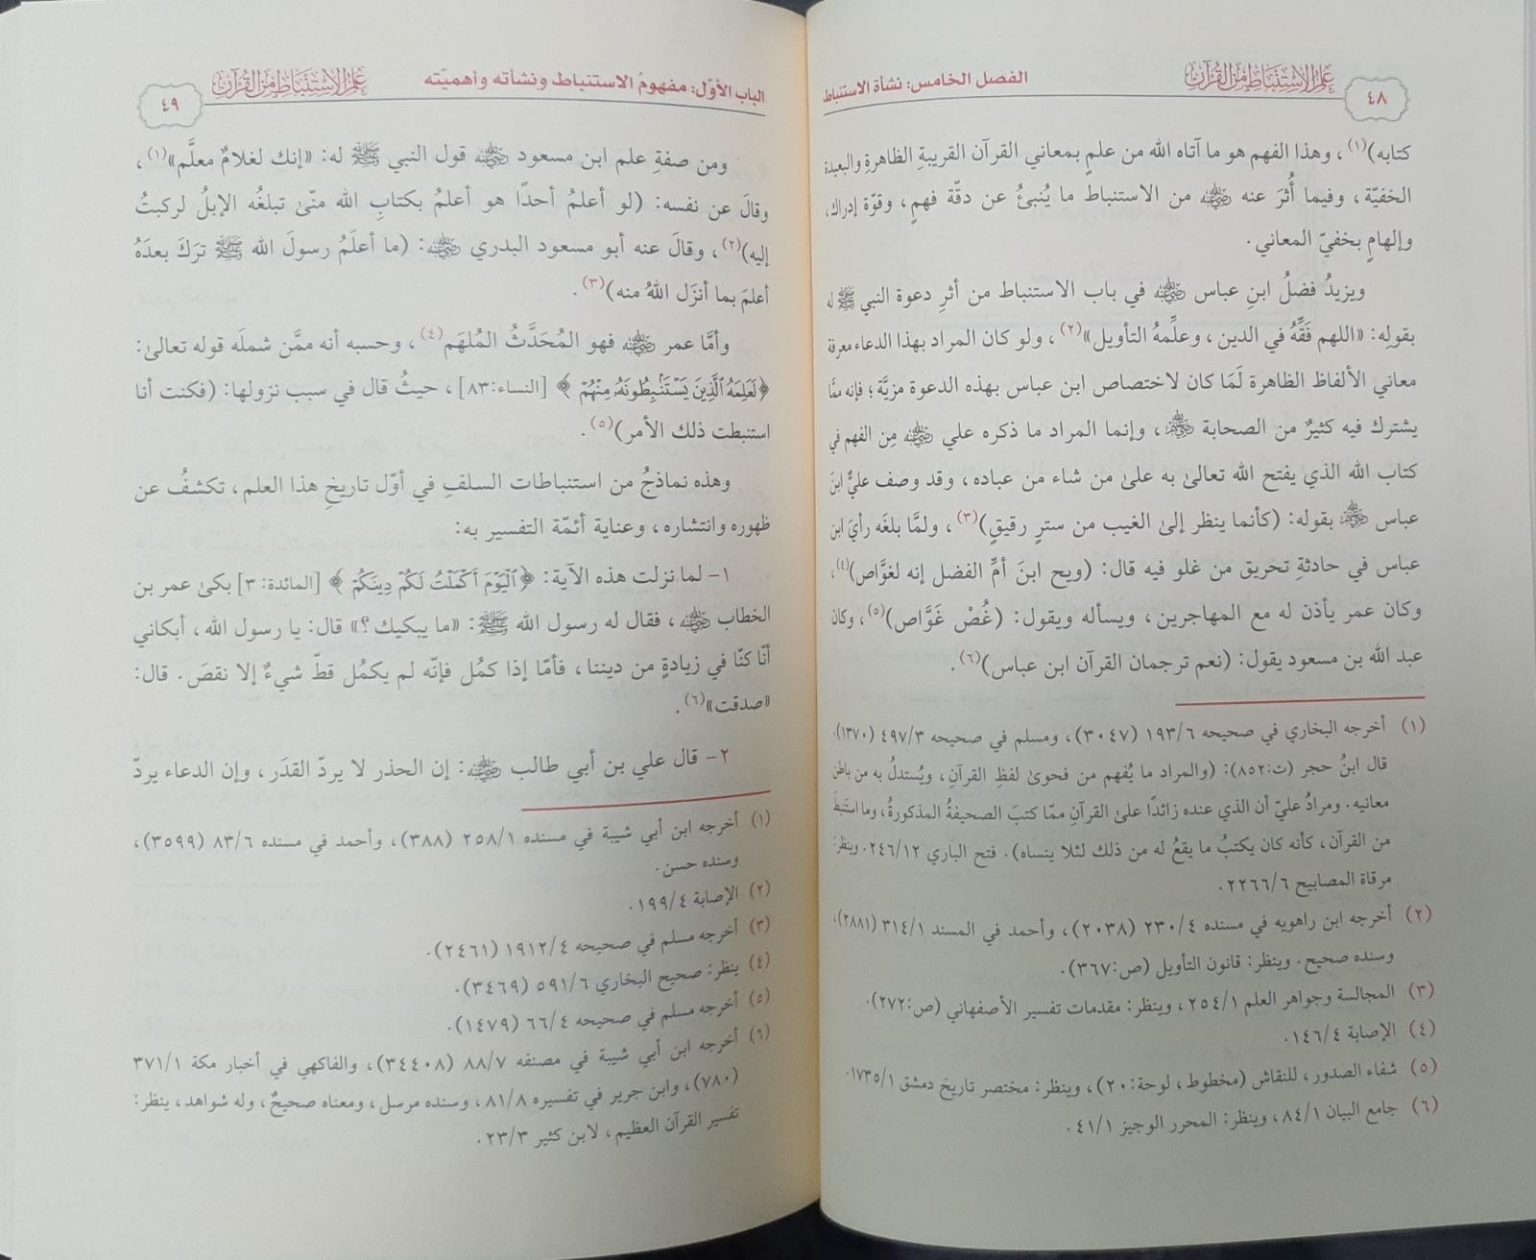 ٤٨
علم الاستنباط من القرآن
الفصل الخامس: نشأة الاستنباط
كتابه)(١)، وهذا الفهم هو ما آتاه الله من علمٍ بمعاني القرآن القريبةِ الظاهرةِ والبعيدة
الخفيّة، وفيما أُثرَ عنه رضي الله عنه من الاستنباط ما يُنبئُ عن دقّة فهمٍ، وقوّة إدراك،
وإلهامٍ بخفيّ المعاني.
ويزيدُ فضلُ ابنِ عباس رضي الله عنه في باب الاستنباط من أثرِ دعوة النبي ﷺ له
بقولِه: «اللهم فَقِّهُ في الدين، وعلِّمهُ التأويل»(٢)، ولو كان المراد بهذا الدعاء معرفة
معاني الألفاظ الظاهرة لَمَا كان لاختصاص ابن عباس بهذه الدعوة مزيَّة؛ فإنه ممَّا
يشترك فيه كثيرٌ من الصحابة رضي الله عنهم، وإنما المراد ما ذكره علي رضي الله عنه مِن الفهم في
كتاب الله الذي يفتح الله تعالىٰ به علىٰ من شاء من عباده، وقد وصف عليٌّ ابنَ
عباس رضي الله عنه بقوله: (كأنما ينظر إلىٰ الغيب من سترٍ رقيقٍ)(٣)، ولمَّا بلغَه رأيَ ابن
عباس في حادثةِ تحريق من غلو فيه قال: (ويح ابنَ أمِّ الفضل إنه لغوَّاص)(٤)،
وكان عمر يأذن له مع المهاجرين، ويسأله ويقول: (غُصْ غَوَّاص)(٥)، وكان
عبد الله بن مسعود يقول: (نعم ترجمان القرآن ابن عباس)(٦).
(١) أخرجه البخاري في صحيحه ١٩٣/٦ (٣٠٤٧)، ومسلم في صحيحه ٤٩٧/٣ (١٣٧٠).
قال ابنُ حجر (ت:٨٥٢): (والمراد ما يُفهم من فحوىٰ لفظِ القرآنِ، ويُستدلُ به من باطن
معانيه. ومرادُ عليّ أن الذي عنده زائدًا علىٰ القرآنِ ممّا كتبَ الصحيفةُ المذكورةُ، وما استَنبطَ
من القرآن، كأنه كان يكتبُ ما يقعُ له من ذلك لئلا ينساه). فتح الباري ٢٤٦/١٢. وينظر:
مرقاة المصابيح ٢٢٦٦/٦.
(٢) أخرجه ابن راهويه في مسنده ٢٣٠/٤ (٢٠٣٨)، وأحمد في المسند ٣١٤/١ (٢٨٨١)،
وسنده صحيح. وينظر: قانون التأويل (ص:٣٦٧).
(٣) المجالسة وجواهر العلم ٢٥٤/١، وينظر: مقدمات تفسير الأصفهاني (ص:٢٧٢).
(٤) الإصابة ١٤٦/٤.
(٥) شفاء الصدور، للنقاش (مخطوط، لوحة:٢٠)، وينظر: مختصر تاريخ دمشق ١٧٣٥/١.
(٦) جامع البيان ٨٤/١، وينظر: المحرر الوجيز ٤١/١.
الباب الأوّل: مفهومُ الاستنباط ونشأته وأهميّته
علم الاستنباط من القرآن
٤٩
ومن صفةِ علم ابن مسعود رضي الله عنه قول النبي ﷺ له: «إنك لغلامٌ معلَّم»(١)،
وقالَ عن نفسه: (لو أعلمُ أحدًا هو أعلمُ بكتابِ الله منّىٰ تبلغُه الإبلُ لركبتُ
إليه)(٢)، وقالَ عنه أبو مسعود البدري رضي الله عنه: (ما أعلَمُ رسولَ الله ﷺ ترَكَ بعدَهُ
أعلمَ بما أنزَل اللهُ منه)(٣).
وأمَّا عمر رضي الله عنه فهو المُحَدَّثُ المُلهَم(٤)، وحسبه أنه ممَّن شملَه قوله تعالىٰ:
﴿لَعَلِمَهُ ٱلَّذِينَ يَسۡتَنۢبِطُونَهُۥ مِنۡهُمۡ﴾ [النساء:٨٣]، حيثُ قال في سبب نزولها: (فكنت أنا
استنبطت ذلك الأمر)(٥).
وهذه نماذجُ من استنباطات السلفِ في أوّل تاريخِ هذا العلم، تكشفُ عن
ظهوره وانتشاره، وعناية أئمّة التفسير به:
١- لما نزلت هذه الآية: ﴿ٱلۡيَوۡمَ أَكۡمَلۡتُ لَكُمۡ دِينَكُمۡ﴾ [المائدة: ٣] بكىٰ عمر بن
الخطاب رضي الله عنه، فقال له رسول الله ﷺ: «ما يبكيك؟» قال: يا رسول الله، أبكاني
أنّا كنّا في زيادةٍ من ديننا، فأمّا إذا كمُل فإنّه لم يكمُل قطّ شيءٌ إلا نقصَ. قال:
«صدقت»(٦).
٢- قال علي بن أبي طالب رضي الله عنه: إن الحذر لا يردّ القدَر، وإن الدعاء يردّ
(١) أخرجه ابن أبي شيبة في مسنده ٢٥٨/١ (٣٨٨)، وأحمد في مسنده ٨٣/٦ (٣٥٩٩)،
وسنده حسن.
(٢) الإصابة ١٩٩/٤.
(٣) أخرجه مسلم في صحيحه ١٩١٢/٤ (٢٤٦١).
(٤) ينظر: صحيح البخاري ٥٩١/٦ (٣٤٦٩).
(٥) أخرجه مسلم في صحيحه ٦٦/٤ (١٤٧٩).
(٦) أخرجه ابن أبي شيبة في مصنفه ٨٨/٧ (٣٤٤٠٨)، والفاكهي في أخبار مكة ٣٧١/١
(٧٨٠)، وابن جرير في تفسيره ٨١/٨، وسنده مرسل، ومعناه صحيحٌ، وله شواهد، ينظر:
تفسير القرآن العظيم، لابن كثير ٢٣/٣.